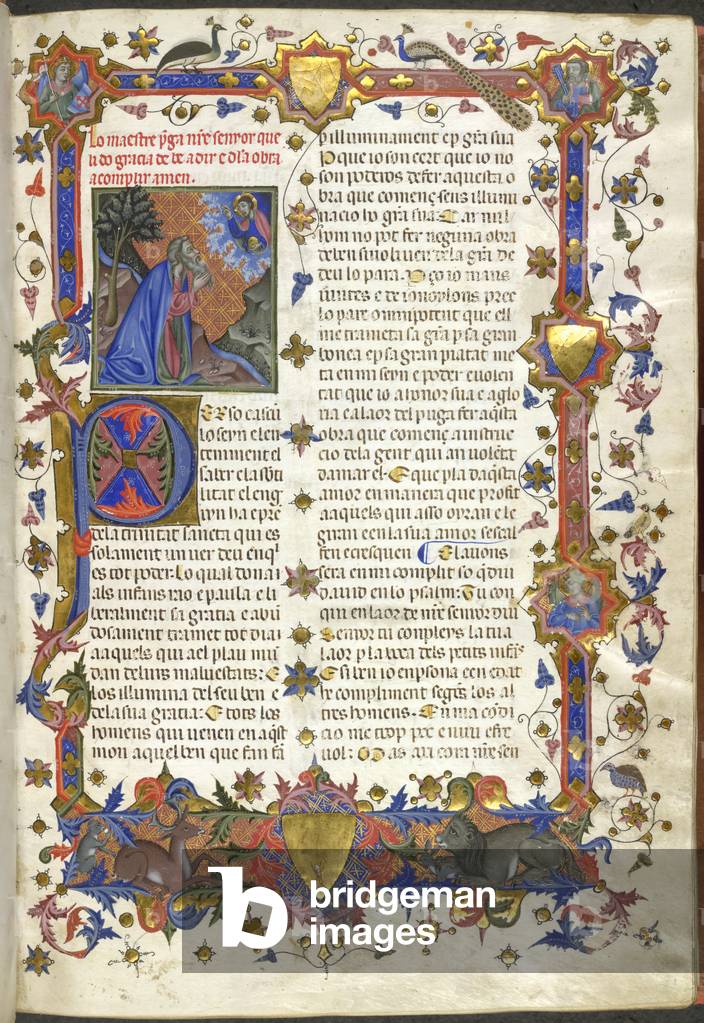 Lo maestre prega nrē senyor que
li do gracia de be a dir e d'la obra
a complir amen.
PErso cascū
lo seyn e len
teniment el
saber e la sōti
litat el eng
yn ha e pre
de la trinitat sancta qui es
solament un ver deu en q̄l
es tot poder. Lo qual dona i
als infans rio e paula e li
beralment sa gracia e abū
dosament tramet tot dia i
a aquels qui a el plau mū
dan de lurs malvestats: E
los illumina del seu ben e
de la sua gracia. E tots los
homens qui venen en aq̄st
mon aquel ben que fan fā
p illuminament e p grā sua
Per que io son cert que io no
son poderos de fer aquesta o
bra que començ sens illumi
nacio e la grā sua. Car nul
hom no pot fer neguna obra
de ben si no li ven de la grā de
deu lo para.
lo pare omnipotent que ell
me trameta sa grā p sa gran
bonea e p sa gran piatat me
ta en mi seyn e poder e volen
tat que io a honor sua e a glo
ria e a laor del puga fer aq̄sta
obra que començ a instruc
cio de la gent qui an volētat
damar el. E que pla daq̄sta
amor en manera que profit
a aquels qui asso oyran e le
giran e en la sua amor sescal
fen e cresquen E lavons
sera en mi complit so q̄ diu
david en lo psalm: Tu con
qui en laor de nrē senyor diu
Senyor tu compleys la tua
laor p la boca dels petits infās
E si ben io en psona e en edat
he compliment segōs los al
tres homens. En ma cōdi
cio me trop pre e vuy esfre
vol: Mas ara com nrē sen
bridgeman
images